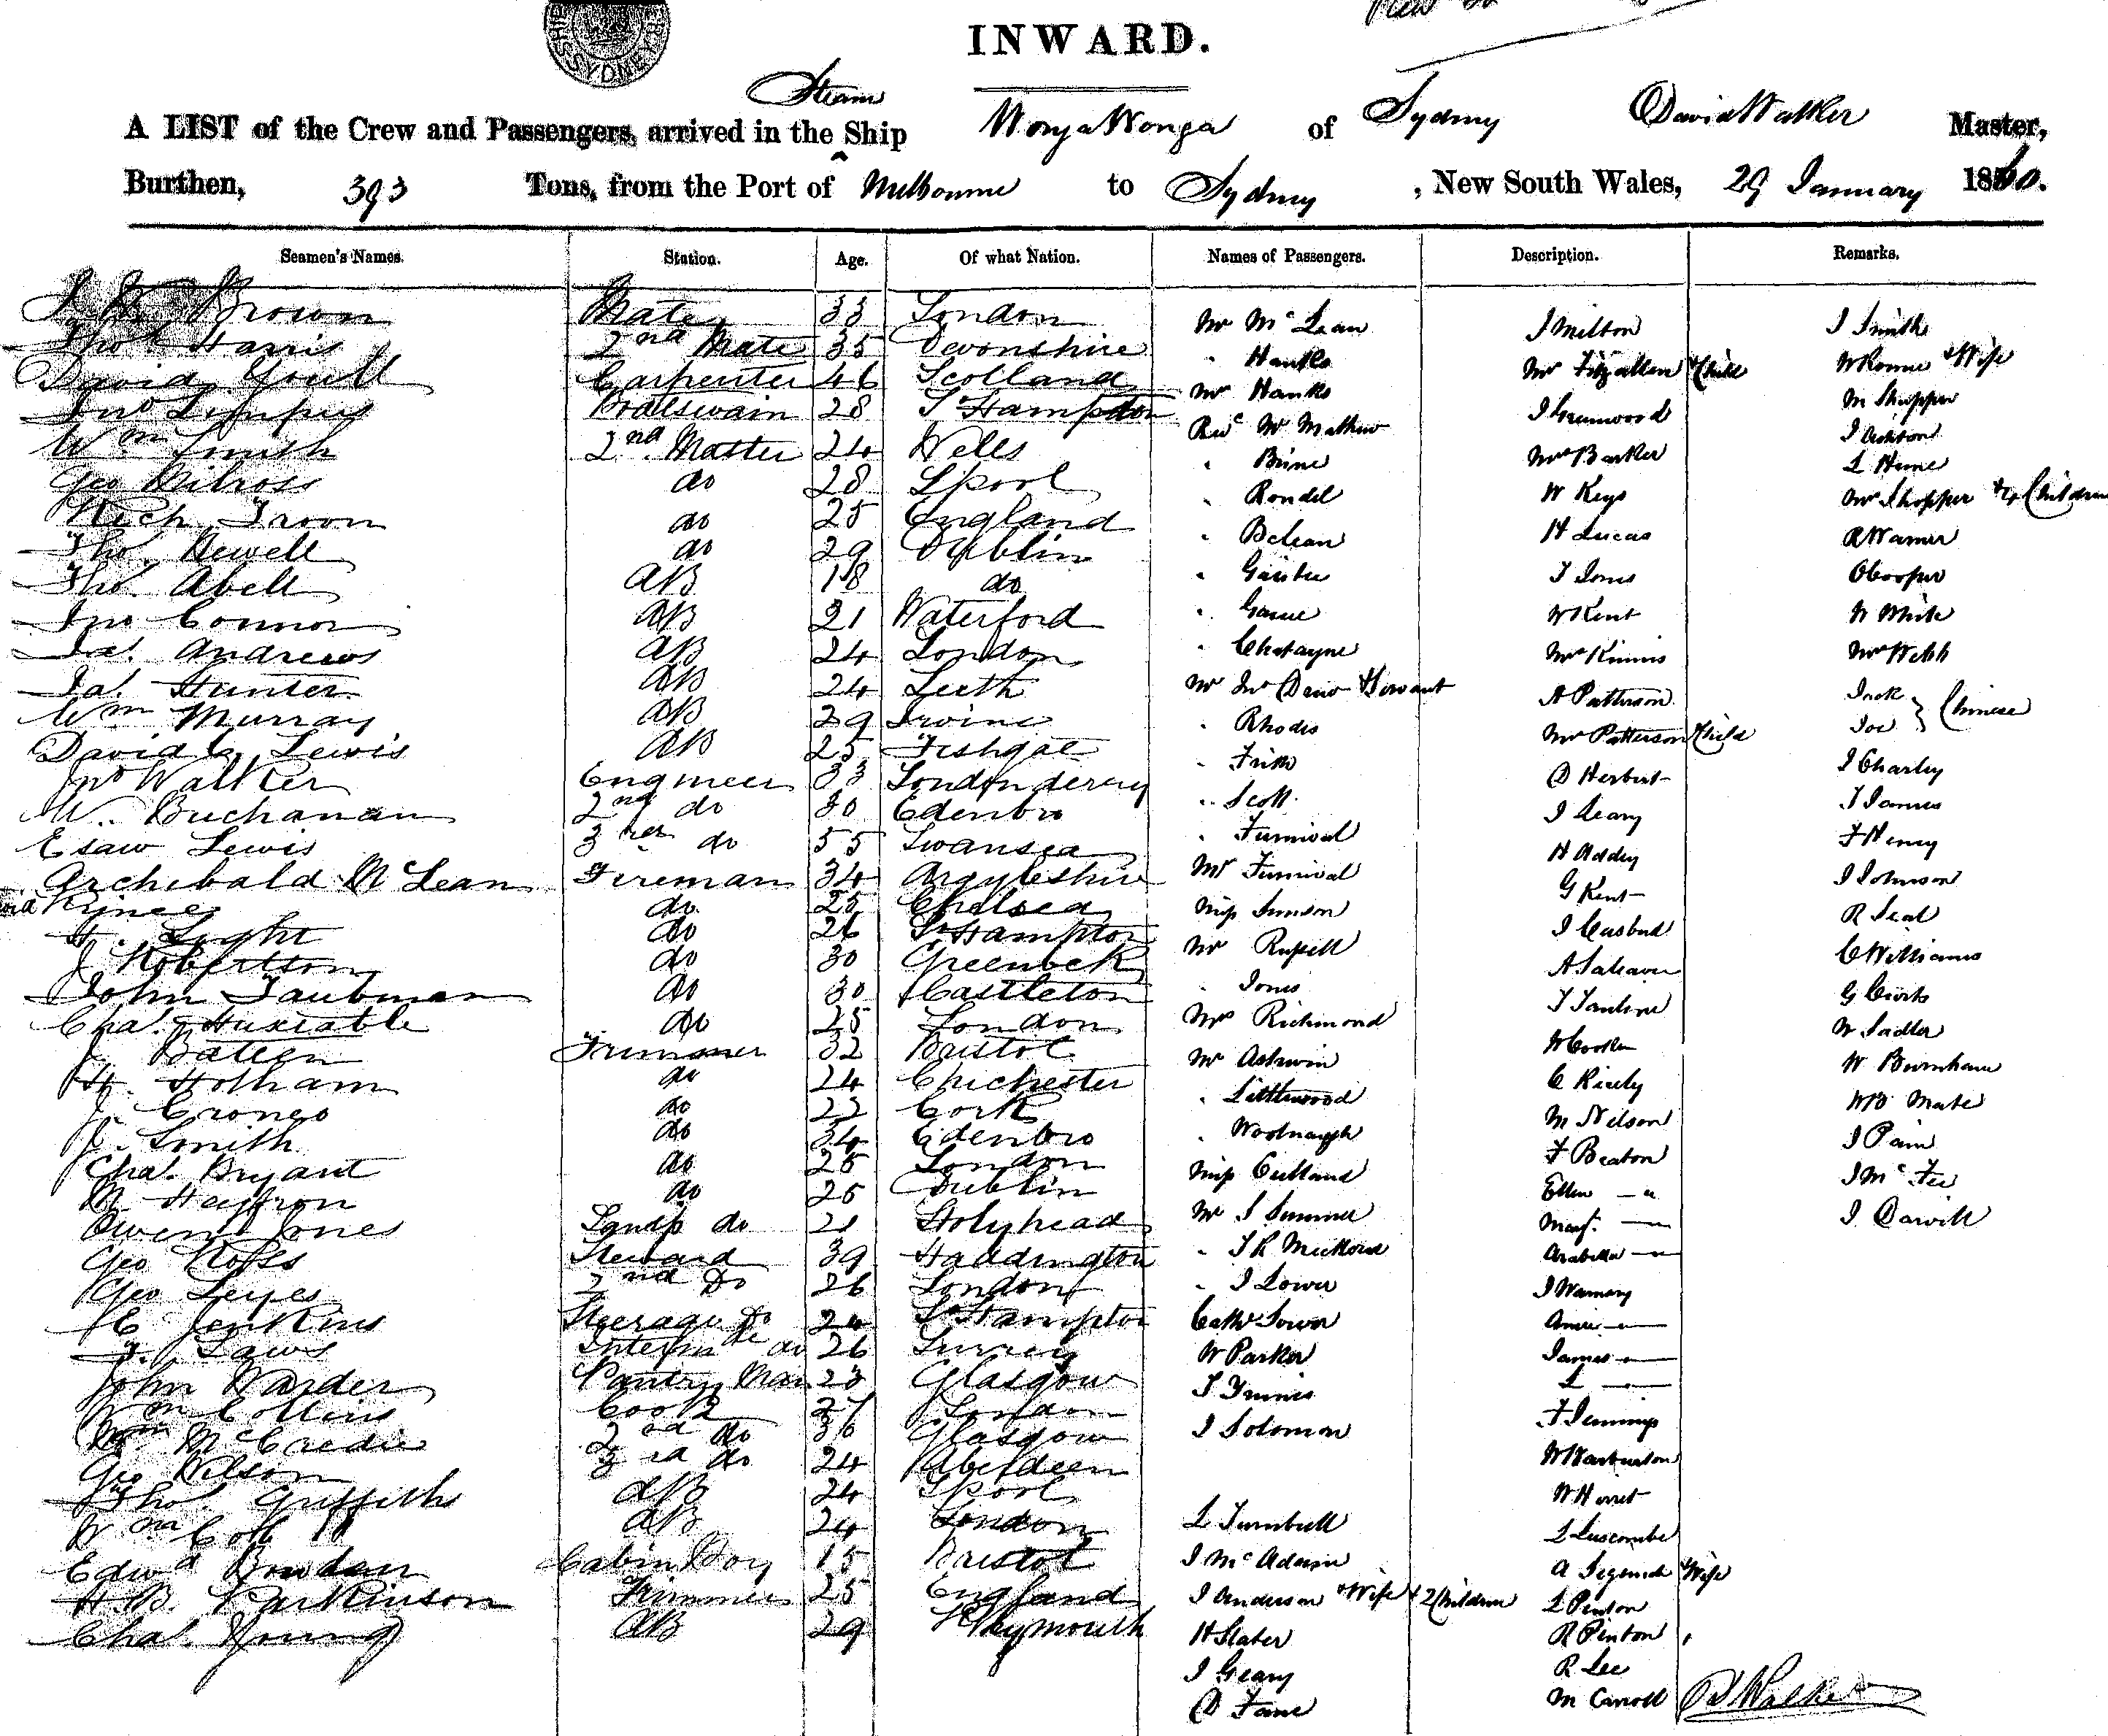 INWARD.
Steam
A LIST of the Crew and Passengers, arrived in the Ship Wonga Wonga of Sydney David Walker Master,
Burthen, 393 Tons, from the Port of Melbourne to Sydney, New South Wales, 29 January 1860.
Seamen's Names. Station. Age. Of what Nation. Names of Passengers. Description. Remarks.
Brown Mate 33 London Mr McLean J Milton J Smith
Thos Harris 2nd Mate 35 Devonshire " Hanks Mr Fitzallen & Child W Rome & Wife
David Youll Carpenter 46 Scotland Mr Hanks J Greenwood M Shopper
Jno Limpus Boatswain 28 S Hampton Mathew J Ashton
Wm Smith 2nd Master 24 Wells " Brine Mrs Barker L Hume
Geo Kilross do 28 L'pool " Rondel W Keys Mrs Shopper & 4 Children
Rich Troon do 25 England H Lucas R Warner
Thos Newell do 29 Dublin T Jones Cooper
Thos Abell AB 18 do W Kent W White
Jno Connor AB 21 Waterford " Chatayne Mrs Webb
Jas Andrews AB 24 London & Servant A Patterson Jack
Jas Hunter AB 24 Leith " Rhodes Mrs Patterson & Child Joe } Chinese
Wm Murray AB 29 Irvine " Frith D Herbert J Charley
David G Lewis AB 25 " Scott J Leary J James
Jno Walker Engineer 33 Londonderry " Furnival H Addey F Henry
W. Buchanan 2nd do 30 Edenbro Mrs Furnival G Kent J Johnson
Esaw Lewis 3rd do 55 Swansea Miss R Seal
Archibald McLean Fireman 34 Argyleshire Mr Russell C Williams
Prince do 25 Chelsea " Jones G Curtis
H. Light do 26 S Hampton Mrs Richmond W Sadler
J Robertson do 30 Greenock Mr Ashwin W Cooke W Burnham
John Taubman do 30 Castleton " Littlewood C Kiely Mate
Chas Huxtable do 25 London " Woolnough M Nelson J Pain
J. Batten Trimmer 32 Bristol Miss F Beaton J McFee
H. Hotham do 24 Chichester Mr J Sumner Ellen — " J Darvill
J. Croneo do 22 Cork Mary — "
J. Smith do 34 Edenbro " J Lower Arabella — "
Chas Bryant do 25 London Cath Lower J Warnary
do 25 Dublin W Parker Annie — "
Owen Jones do 21 Holyhead James — "
Geo Ross Steward 39 Haddington J Solomon L — "
Geo 2nd Do 26 London F Jennings
E Jenkins Steerage Do 24 S Hampton W Warburton
J. Laws Interm de do 26 Surrey
John Warder Pantry Man 23 Glasgow L Turnbull L Luscombe
Wm Collins Cook 27 London J McAdam & Wife
Wm McCredie 2nd do 36 Glasgow J Anderson & Wife & 2 Children L Pinton
Geo Wilson 3rd do 24 Aberdeen H Slater R Pinton
Thos Griffiths AB 24 L'pool J Geary R Lee
Wm Cott AB 24 London D Fane M Carroll
Edwd Bowden Cabin Boy 15 Bristol
H.B. Parkinson Trimmer 25 England
Chas Young AB 29 Weymouth
D Walker